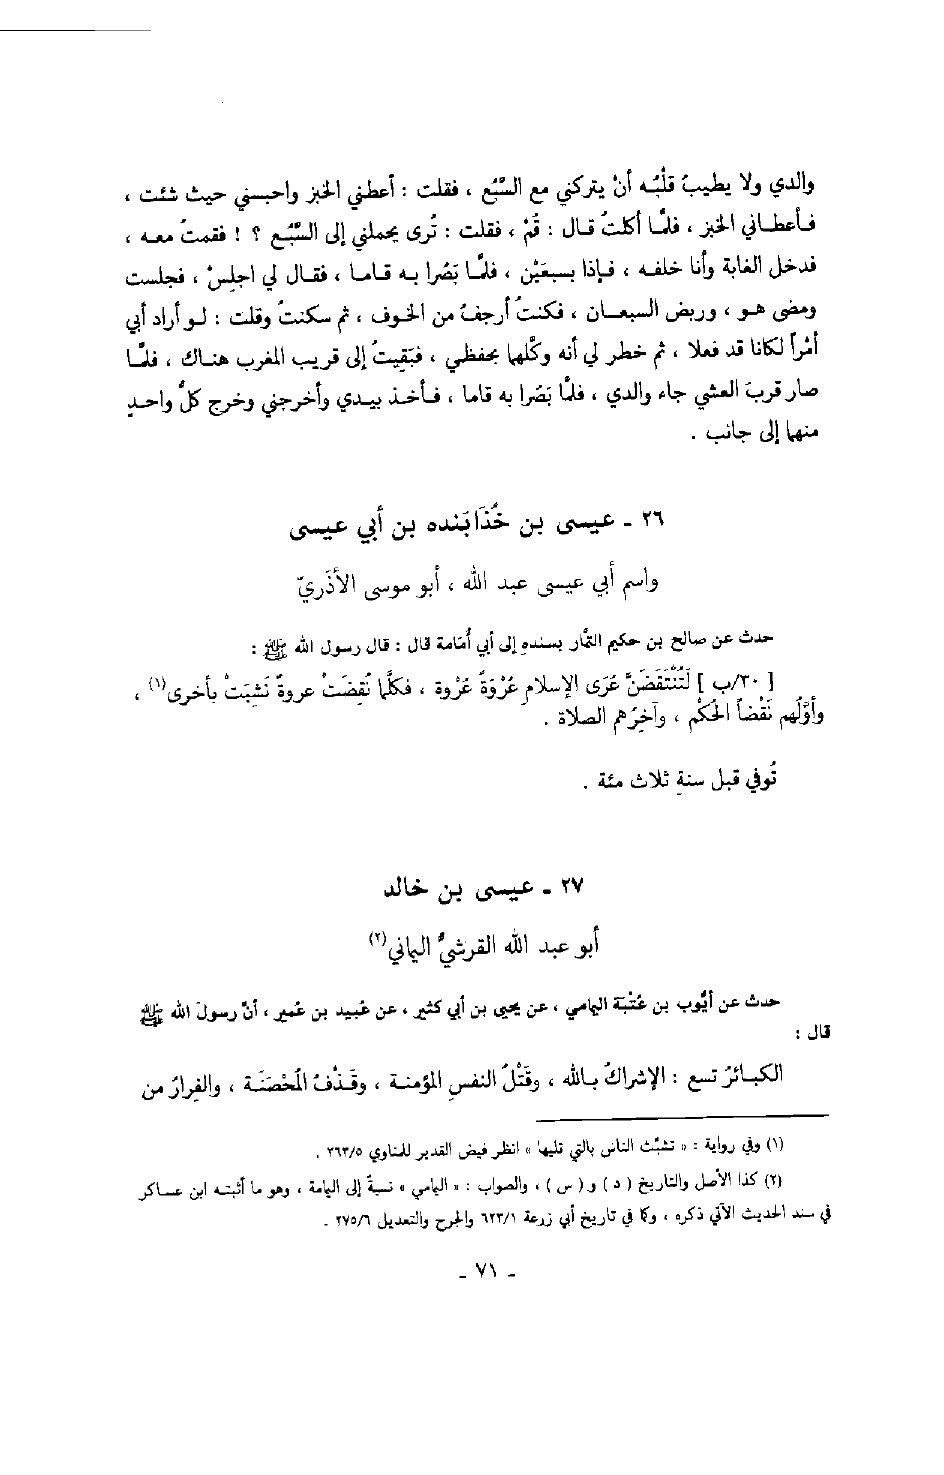 والدي ولا يطيبُ قلْبُه أنْ يتركني مع السَّبُع ، فقلت : أعطني الخبز واحبسني حيث شئت ،
فأعطاني الخبز ، فلمَّا أكلتُ قال : قُمْ ، فقلت : تُرى يحملني إلى السَّبُع ؟ ! فقمتُ معه ،
فدخل الغابة وأنا خلفه ، فإذا بسبعَيْن ، فلمَّا بَصُرا به قاما ، فقال لي اجلِسْ ، فجلست
ومضى هو ، وربض السبعان ، فكنتُ أرجفُ من الخوف ، ثم سكنتُ وقلت : لو أراد أبي
أمْراً لكانا قد فعلا ، ثم خطر لي أنه وكَّلهما بحفظي ، فبَقِيتُ إلى قريب المغرب هناك ، فلمَّا
صار قربَ العشي جاء والدي ، فلمَّا بَصُرا به قاما ، فأخذ بيدي وأخرجني وخرج كلُّ واحدٍ
منهما إلى جانب .
٢٦ ـ عيسى بن خُذَابَنده بن أبي عيسى
واسم أبي عيسى عبد الله ، أبو موسى الأذَريّ
حدث عن صالح بن حكيم التمَّار بسندهِ إلى أبي أُمَامة قال : قال رسول الله ﷺ :
[ ٣٠/ب ] لَتُنْتَقَضَنَّ عُرَى الإسلامِ عُرْوَةً عُرْوة ، فكلَّما نُقِضَتْ عروةٌ نَشِبَتْ بأخرى(١) ،
وأوَّلُهم نَقْضاً الحُكْم ، وآخِرُهم الصلاة .
تُوفي قبل سنةِ ثلاث مئة .
٢٧ ـ عيسى بن خالد
أبو عبد الله القرشيُّ اليماني(٢)
حدث عن أيُّوب بن عُتْبَة اليمامي ، عن يحيى بن أبي كثير ، عن عُبيد بن عُمير ، أنَّ رسولَ الله ﷺ
قال :
الكبائرُ تسع : الإشراكُ بالله ، وقَتْلُ النفسِ المؤمنة ، وقَذْفُ المُحْصَنَة ، والفِرارُ من
(١) وفي رواية : « تشبَّث الناس بالتي تليها » انظر فيض القدير للمناوي ٢٦٣/٥ .
(٢) كذا الأصل والتاريخ ( د ) و ( س ) ، والصواب : « اليمامي » نسبةً إلى اليمامة ، وهو ما أثبته ابن عساكر
في سند الحديث الآتي ذكره ، وكما في تاريخ أبي زرعة ٦٢٣/١ والجرح والتعديل ٢٧٥/٦ .
ـ ٧١ ـ